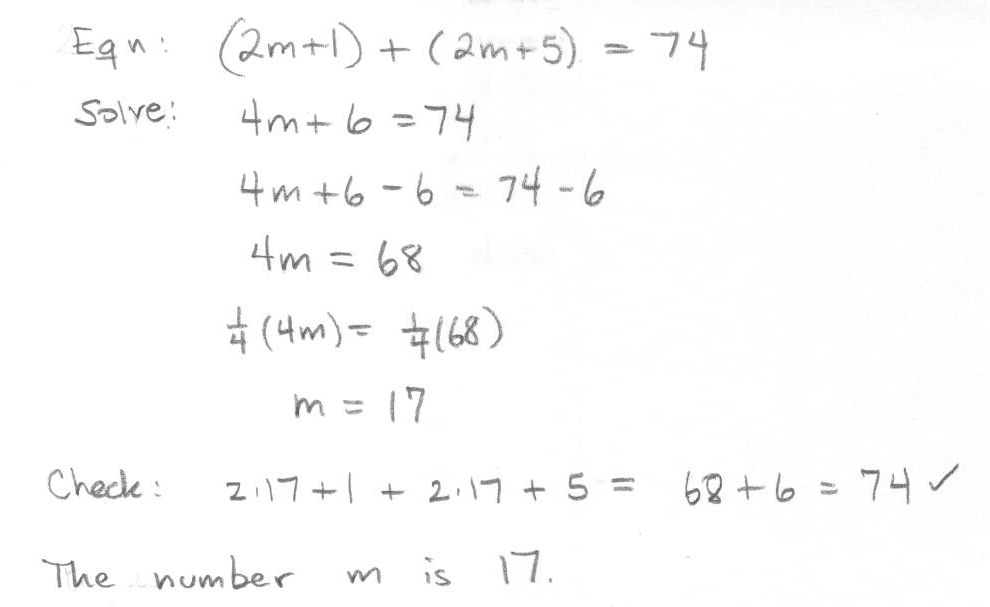 Eqn: (2m+1) + (2m+5) = 74
Solve: 4m+ 6 = 74
4m+6 - 6 = 74 - 6
4m = 68
1/4 (4m) = 1/4 (68)
m = 17
Check: 2·17+1 + 2·17 + 5 = 68+6 = 74 ✓
The number m is 17.